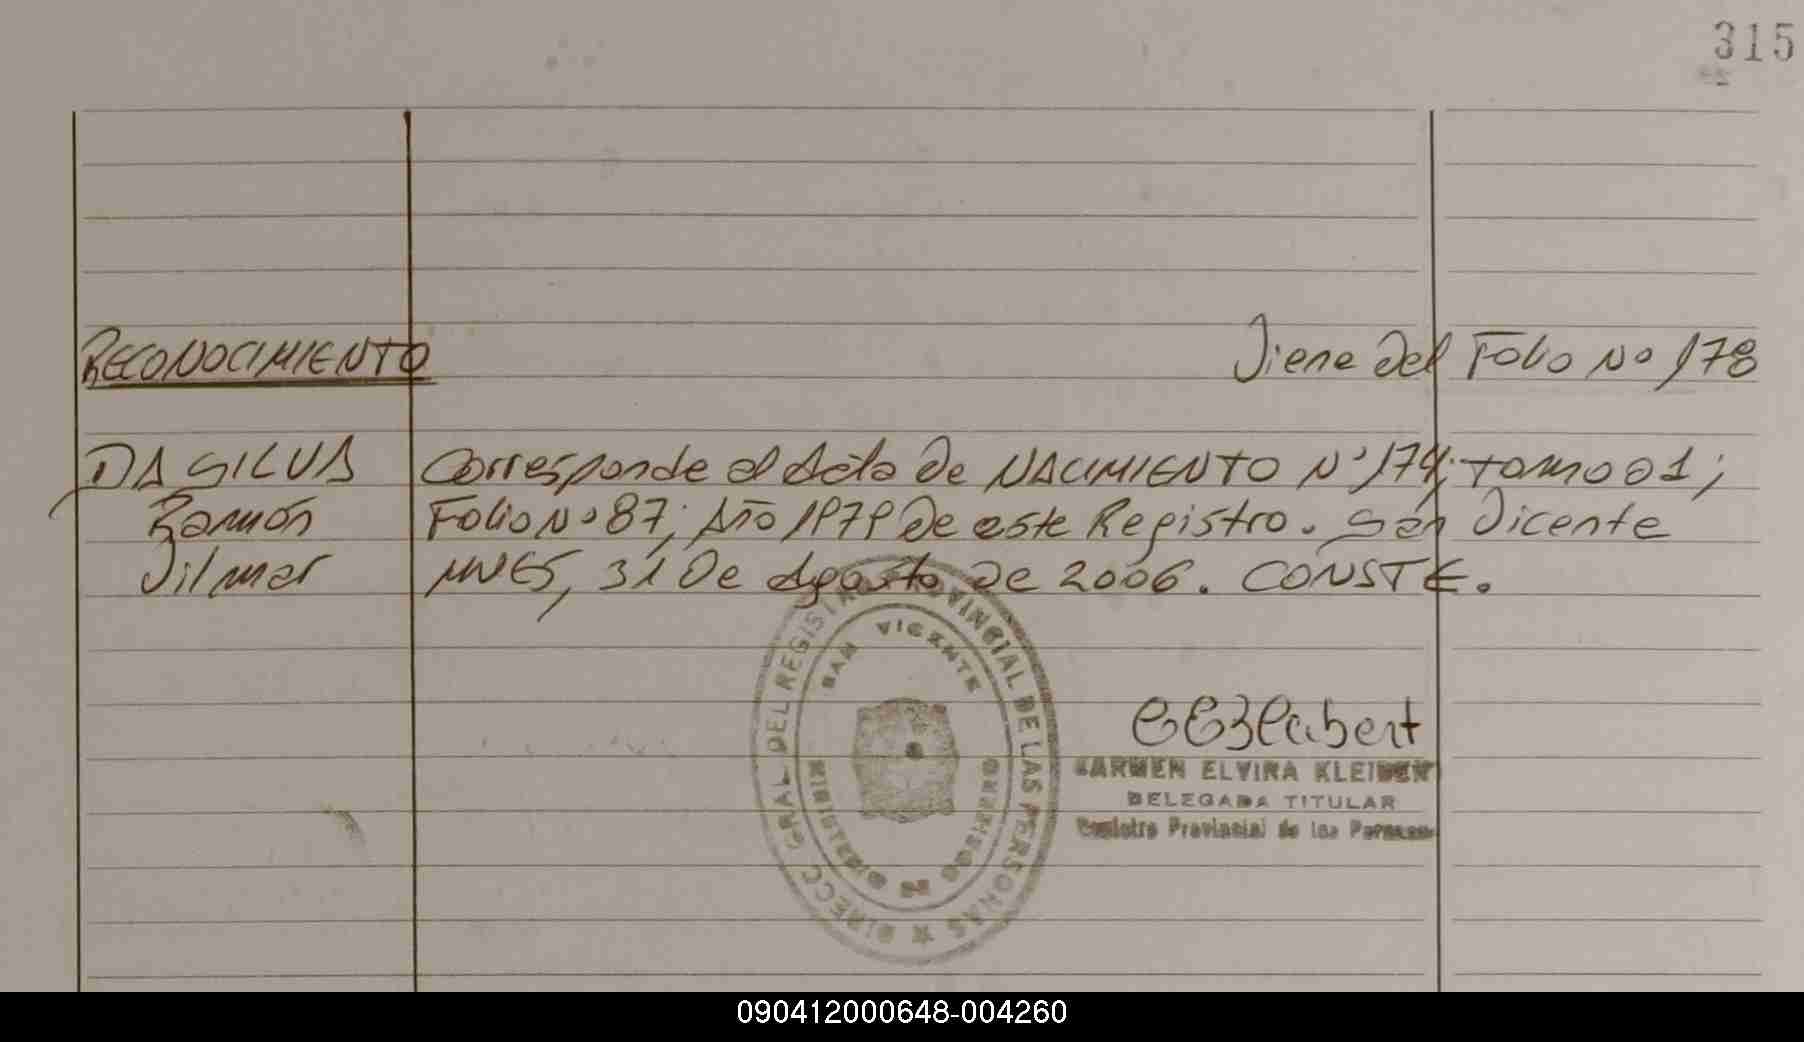 315
RECONOCIMIENTO
Viene del Folio Nº 178
DA SILVA Corresponde al Acta de NACIMIENTO Nº 174; TOMO 01;
Ramón Folio Nº 87; Año 1979 de este Registro. San Vicente
Vilmar MNES, 31 De Agosto de 2006. CONSTE.
DIRECC. GRAL. DEL REGISTRO PROVINCIAL DE LAS PERSONAS
SAN VICENTE
MISIONES
CARMEN ELVIRA KLEIBERT
DELEGADA TITULAR
Registro Provincial de las Personas
090412000648-004260